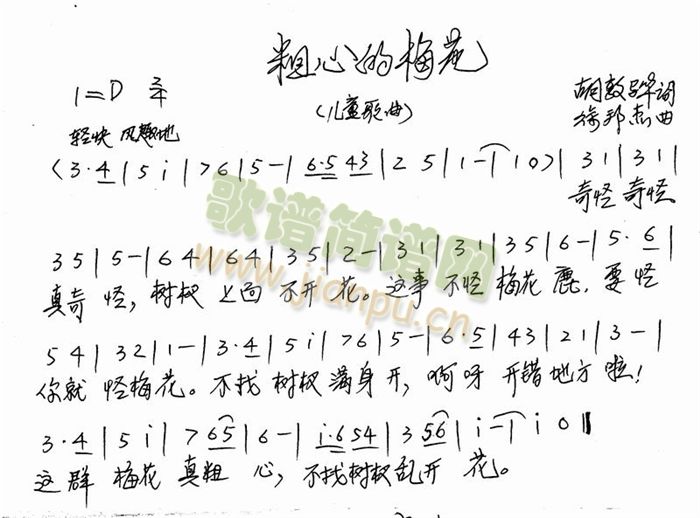 粗心的梅花
(儿童歌曲)
1=D 2/4
胡敦骅词
徐邦杰曲
轻快 风趣地
(3·4|5 i|7 6|5-|6·5 43|2 5|1-|1 0)|3 1|3 1|
奇怪 奇怪
3 5|5-|6 4|6 4|3 5|2-|3 1|3 1|3 5|6-|5· 6|
真奇怪,树杈上面不开花。这事不怪梅花鹿,要怪
5 4|3 2|1-|3·4|5 i|7 6|5-|6·5|4 3|2 1|3-|
你就怪梅花。不找树杈满身开,啊呀开错地方啦!
3·4|5 i|7 65|6-|i·6 54|3 56|i-|i 0‖
这群梅花真粗心,不找树杈乱开花。
歌谱简谱网
www.jianpu.cn